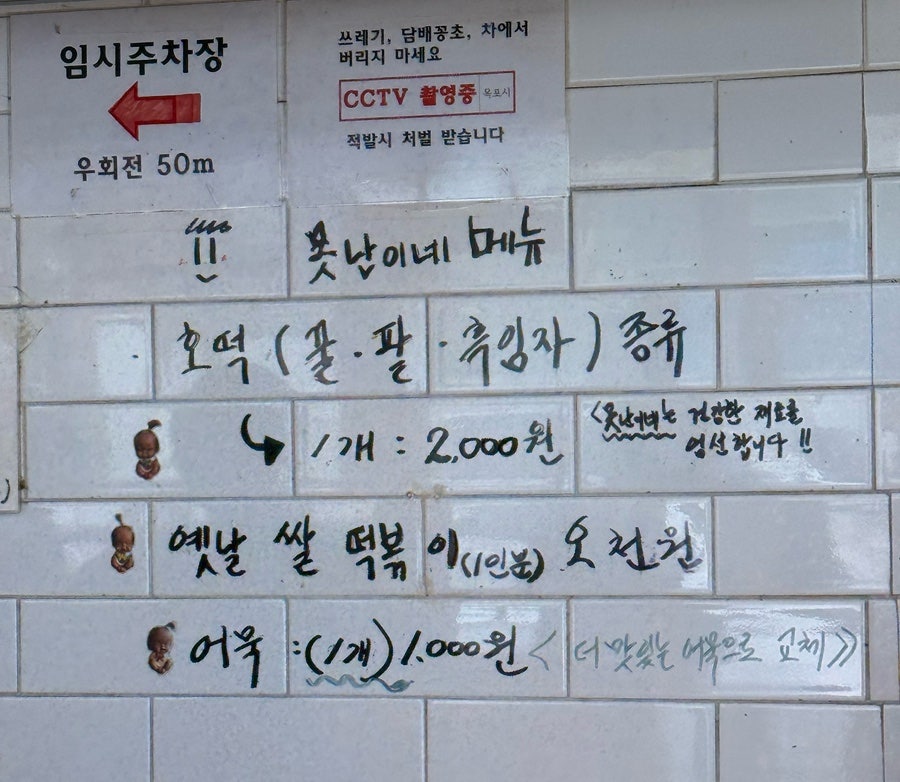 임시주차장
우회전 50m
쓰레기, 담배꽁초, 차에서
버리지 마세요
CCTV 촬영중 목포시
적발시 처벌 받습니다
못난이네 메뉴
호떡 (꿀·팥·흑임자) 종류
1개 : 2,000원
<못난이네는 건강한 재료를
엄선합니다 !!
옛날 쌀 떡볶이 (1인분) 오천원
어묵 : (1개) 1.000원 < 더 맛있는 어묵으로 교체 》